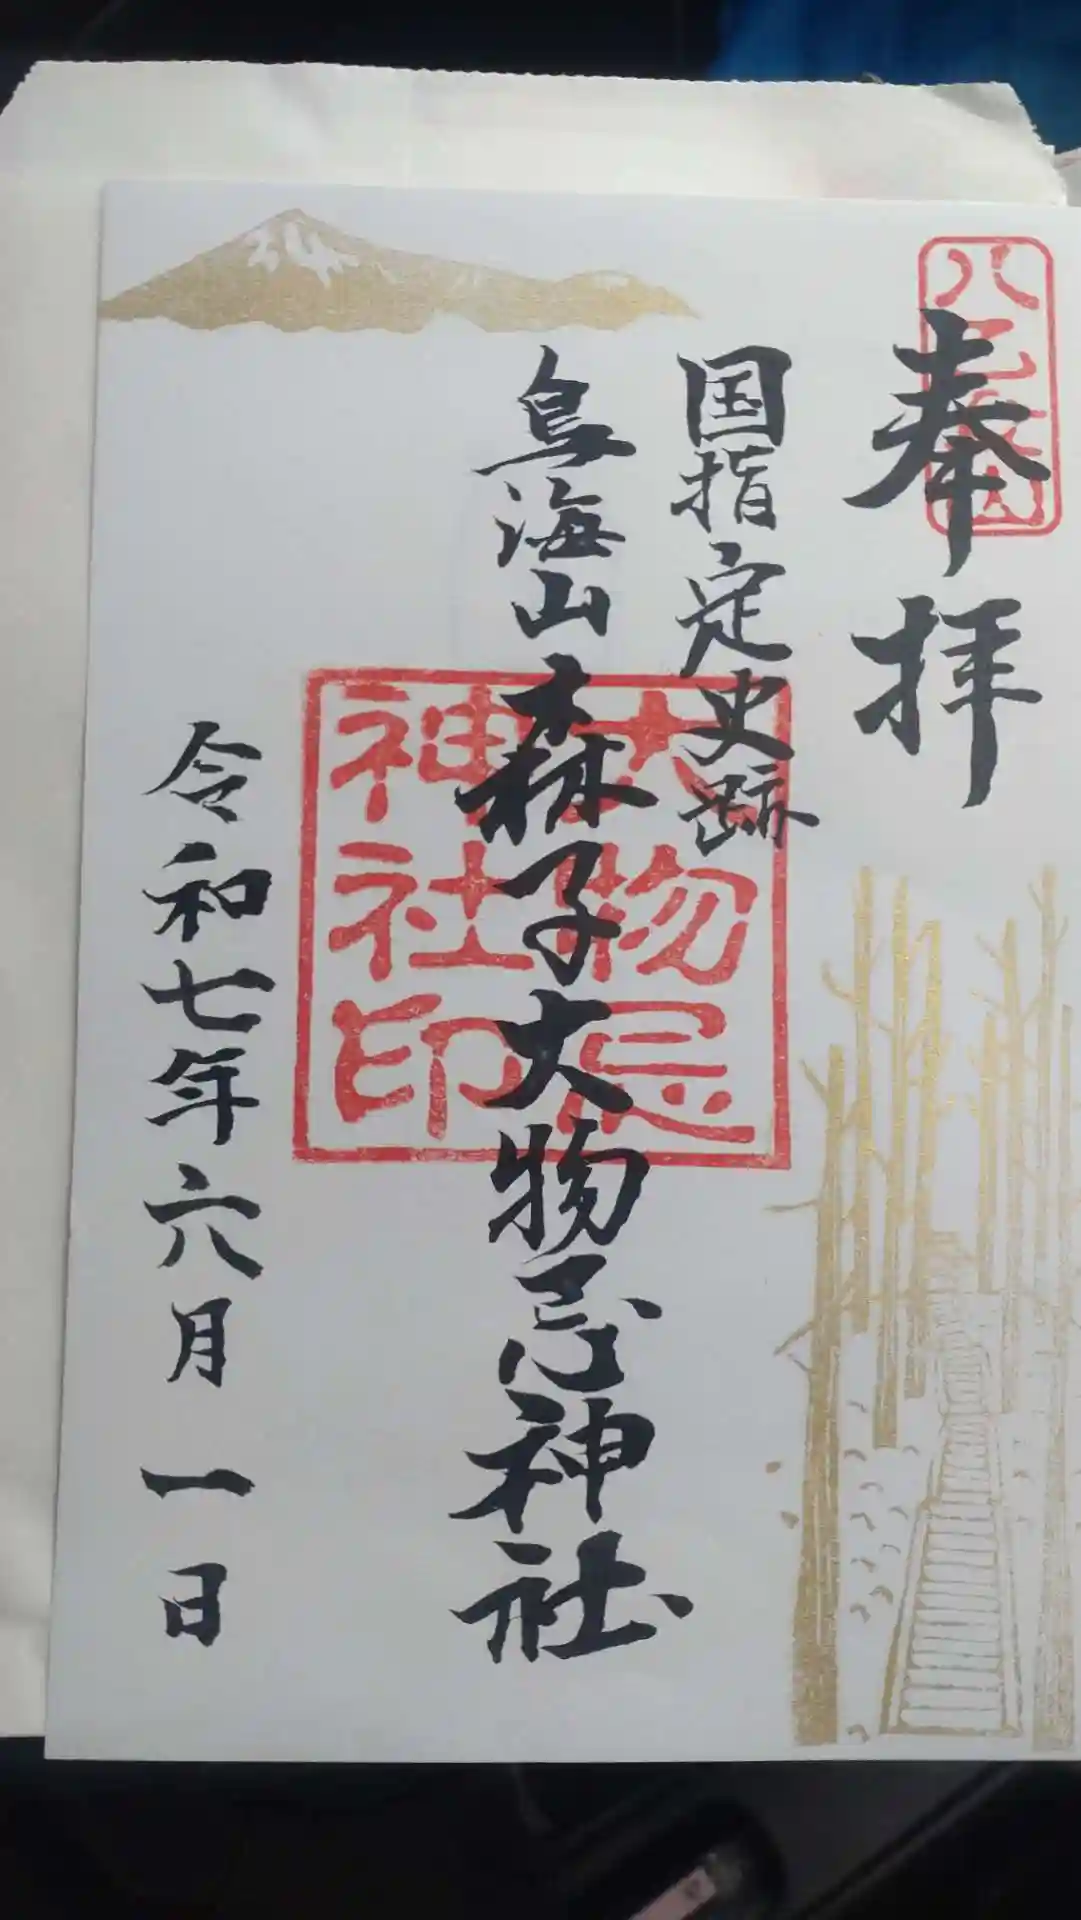 奉拝
国指定史跡
鳥海山森子大物忌神社
令和七年六月一日
大物忌
神社印